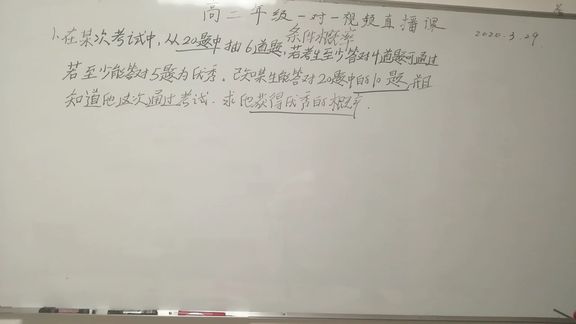 高二年级一对一视频直播课
条件概率
2020.3.29.
1.在某次考试中,从20题中抽6道题,若考生至少答对4道题可通过
若至少能答对5题为优秀。已知某生能答对20题中的10题,并且
知道他这次通过考试.求他获得优秀的概率.